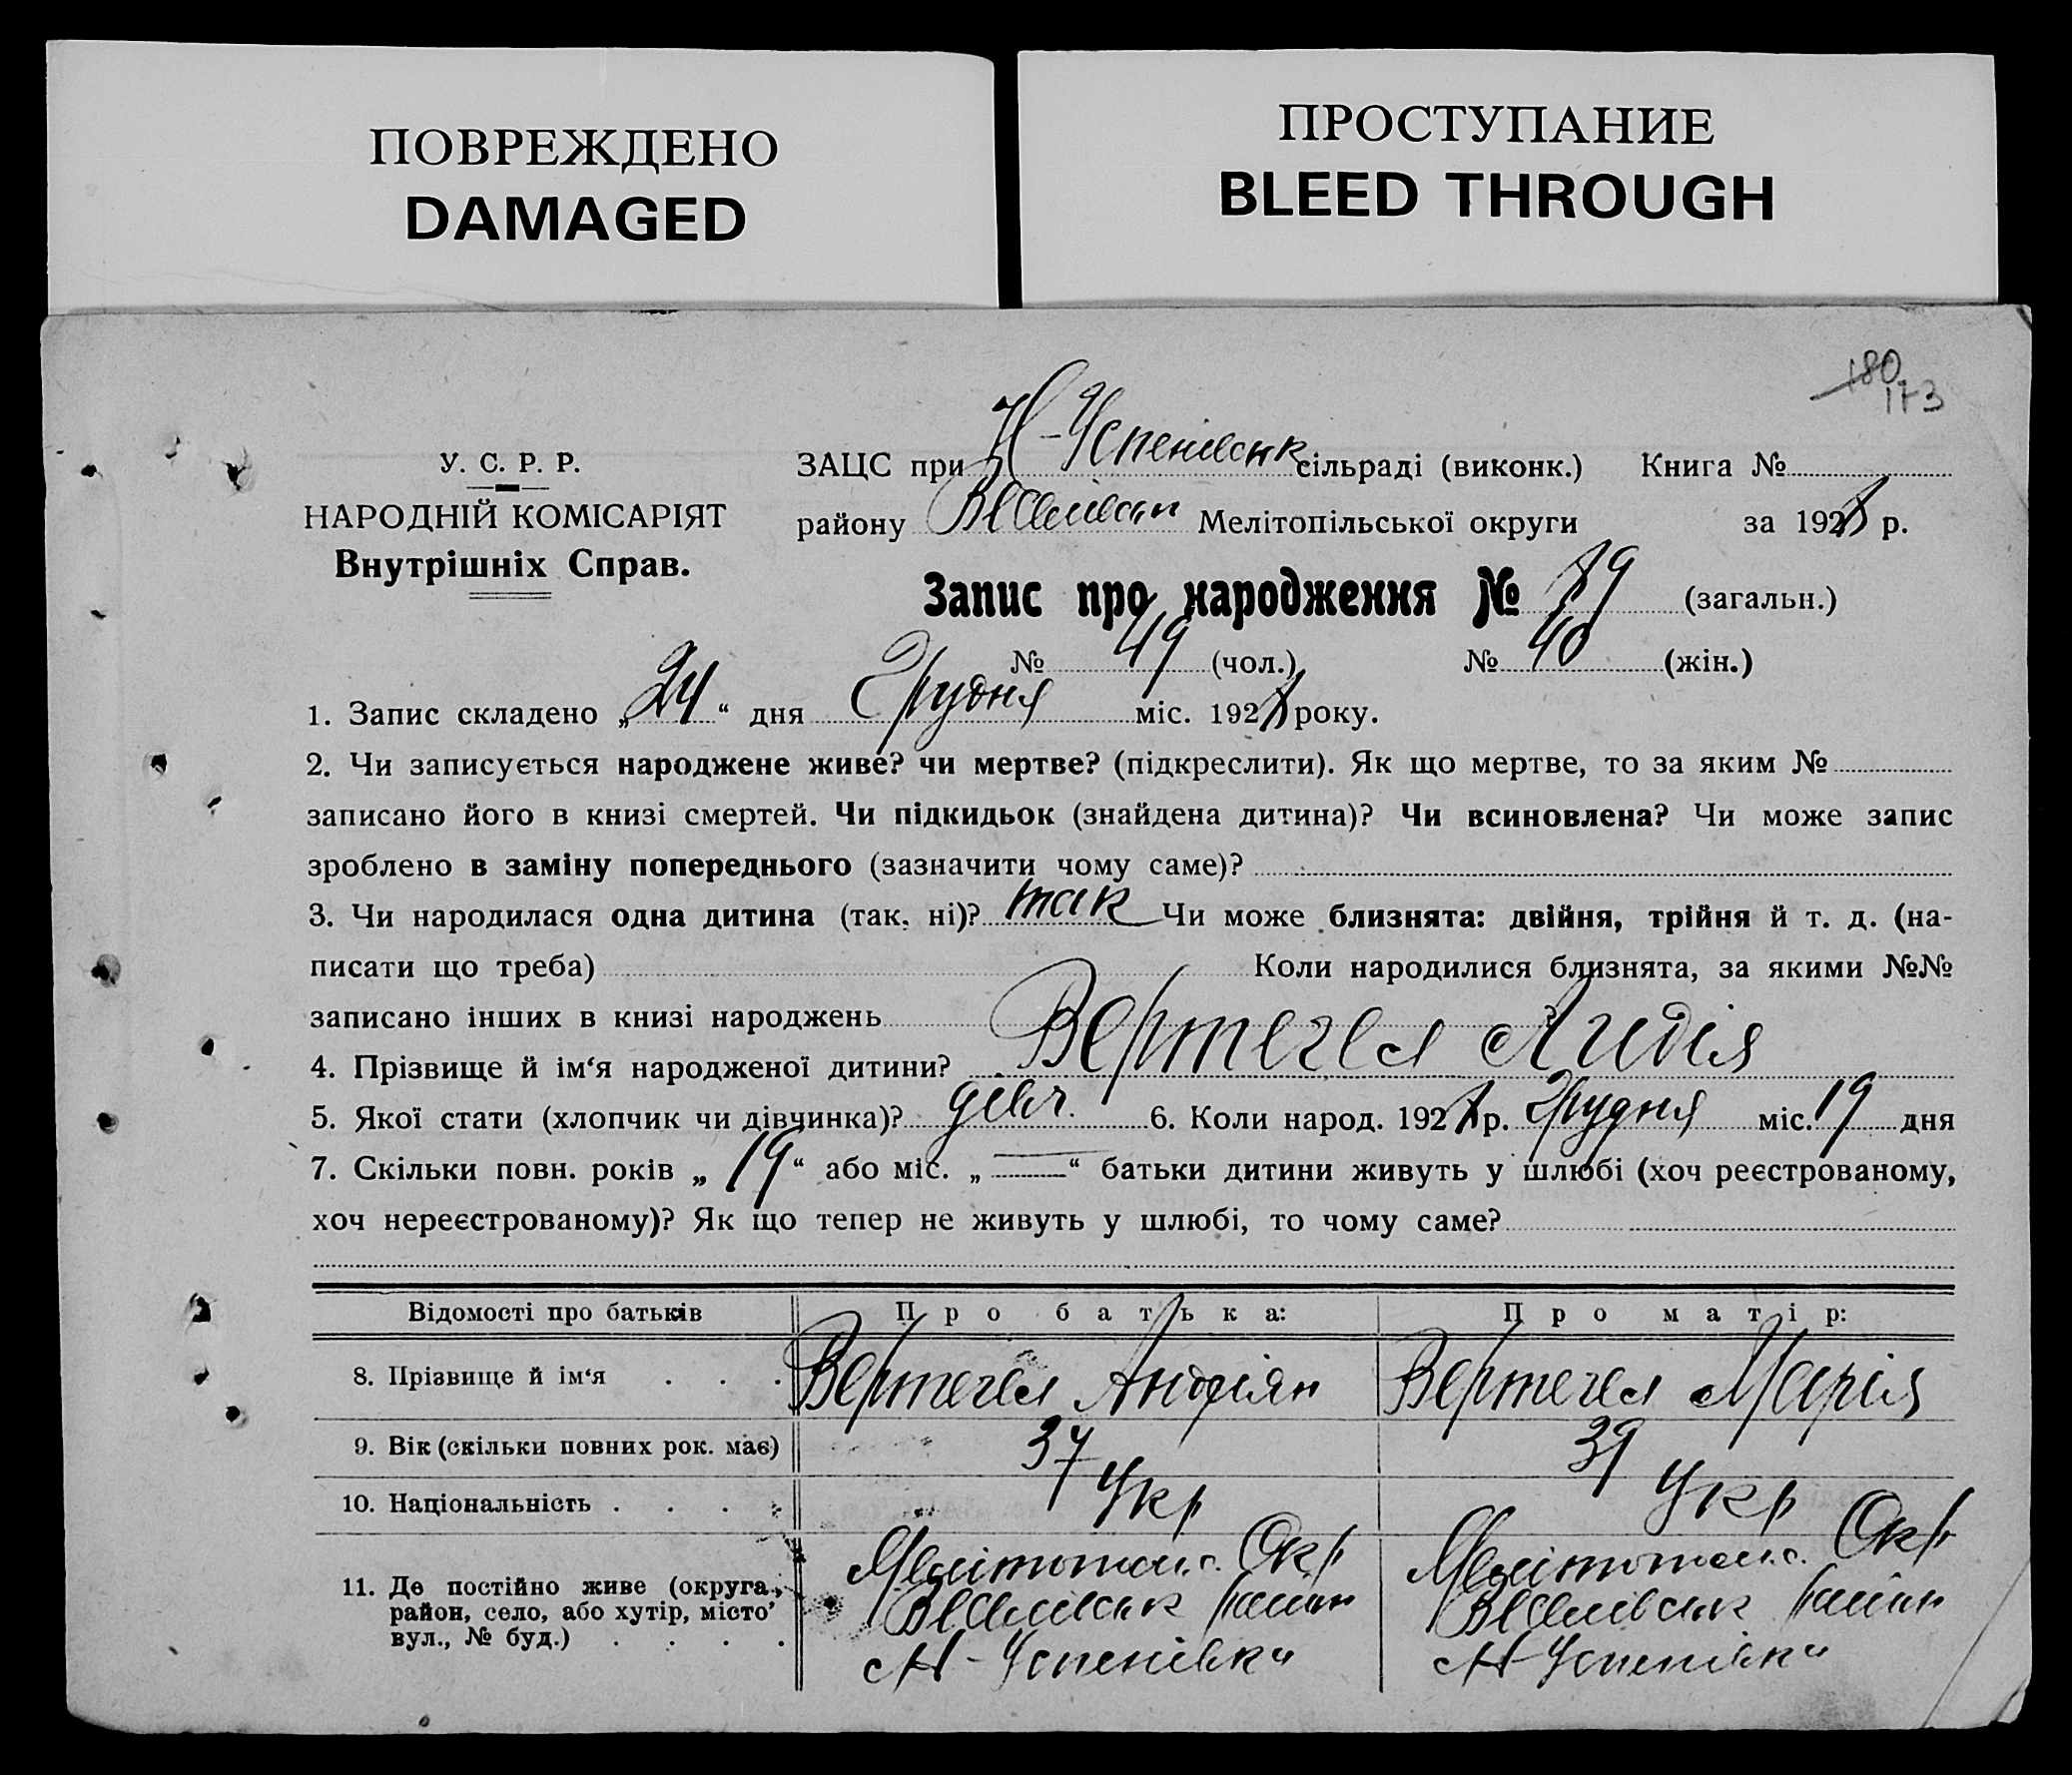 ПОВРЕЖДЕНО
DAMAGED
ПРОСТУПАНИЕ
BLEED THROUGH
180
173
У. С. Р. Р.
НАРОДНІЙ КОМІСАРІЯТ
Внутрішніх Справ.
ЗАЦС при Н-Успенівськ сільраді (виконк.) Книга №
району Веселівськ Мелітопільської округи за 1928 р.
Запис про народження № 89 (загальн.)
№ 49 (чол.) № 40 (жін.)
1. Запис складено „24“ дня Грудня міс. 1928 року.
2. Чи записується народжене живе? чи мертве? (підкреслити). Як що мертве, то за яким №
записано його в книзі смертей. Чи підкидьок (знайдена дитина)? Чи всиновлена? Чи може запис
зроблено в заміну попереднього (зазначити чому саме)?
3. Чи народилася одна дитина (так, ні)? так Чи може близнята: двійня, трійня й т. д. (на-
писати що треба) Коли народилися близнята, за якими №№
записано інших в книзі народжень
4. Прізвище й ім‘я народженої дитини? Вертегел Лидія
5. Якої стати (хлопчик чи дівчинка)? девч. 6. Коли народ. 1928 р. Грудня міс. 19 дня
7. Скільки повн. років „19“ або міс. „—“ батьки дитини живуть у шлюбі (хоч реєстрованому,
хоч нереєстрованому)? Як що тепер не живуть у шлюбі, то чому саме?
Відомості про батьків Про батька: Про матір:
8. Прізвище й ім‘я . . . Вертегел Андріян Вертегел Марія
9. Вік (скільки повних рок. має) 37 39
10. Національність . . . . Укр Укр
11. Де постійно живе (округа, район, село, або хутір, місто, вул., № буд.) . . . .
Мелітопольс. Окр
Веселівськ район
Н-Успенівка
Мелітопольс. Окр
Веселівськ район
Н-Успенівка